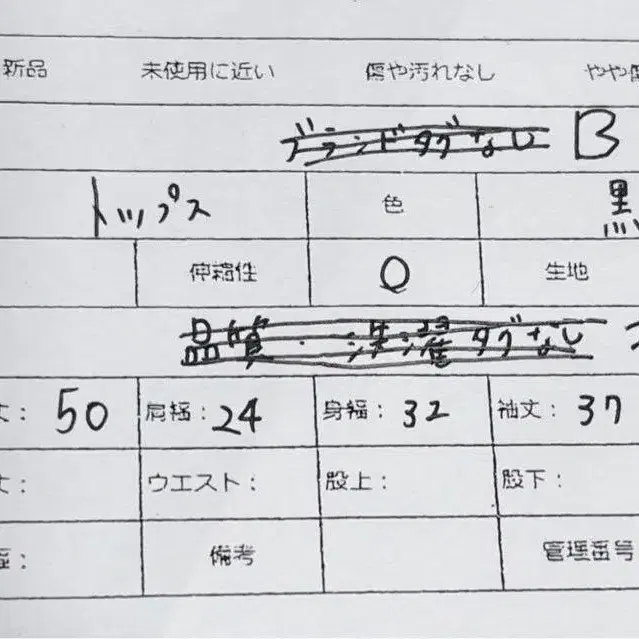 新品 未使用に近い 傷や汚れなし やや傷
ブランドタグなし B
トップス 色 黒
伸縮性 〇 生地
品質・洗濯タグなし
丈： 50 肩幅： 24 身幅： 32 袖丈： 37
丈： ウエスト： 股上： 股下：
幅： 備考 管理番号